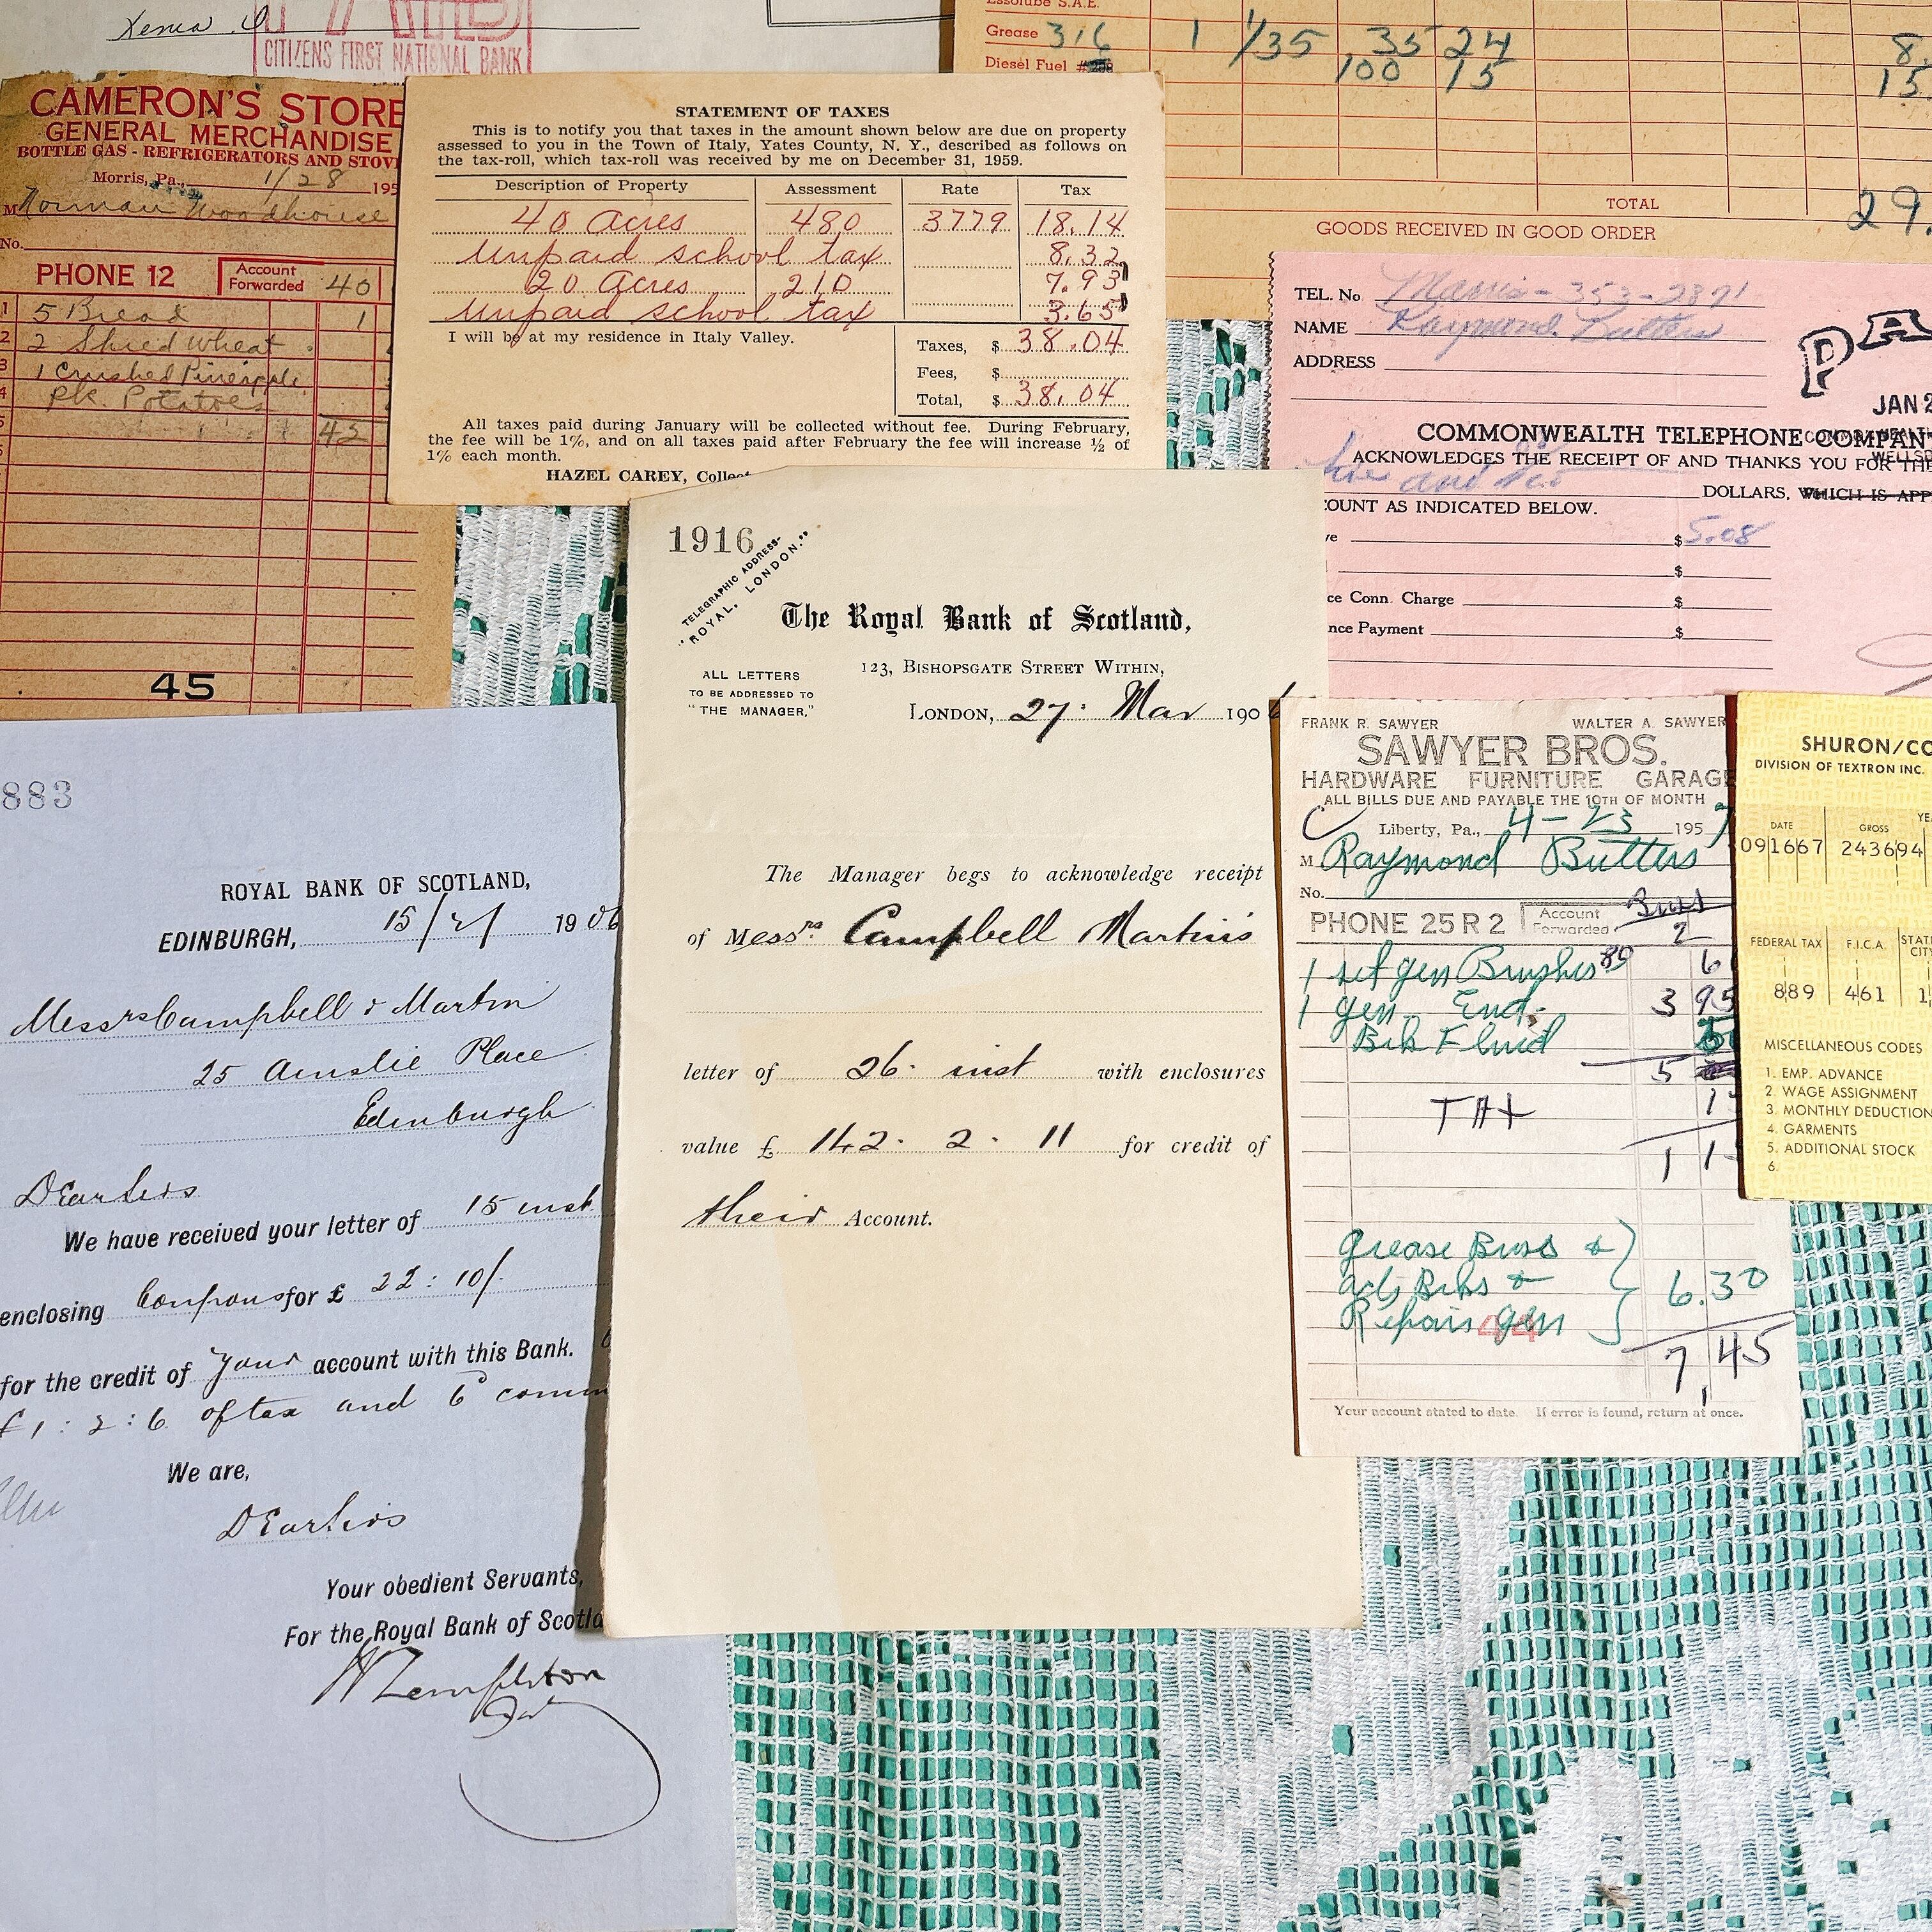 Xenia, O
CITIZENS FIRST NATIONAL BANK
Essolube S.A.E.
Grease 316 1 1/35 35 24 8.
Diesel Fuel 100 15 15.
TOTAL 29.
GOODS RECEIVED IN GOOD ORDER
CAMERON'S STORE
GENERAL MERCHANDISE
BOTTLE GAS - REFRIGERATORS AND STOV
Morris, Pa., 1/28 195
M Norman Woodhouse
No.
PHONE 12 Account Forwarded 40
1 5 Bread 1
2 2 Shred Wheat
3 1 Crushed Pineapple
4 pk. Potatoes
5 45
45
STATEMENT OF TAXES
This is to notify you that taxes in the amount shown below are due on property
assessed to you in the Town of Italy, Yates County, N. Y., described as follows on
the tax-roll, which tax-roll was received by me on December 31, 1959.
Description of Property Assessment Rate Tax
40 Acres 480 3779 18.14
Unpaid school tax 8.32
20 Acres 210 7.93
Unpaid school tax 3.65
I will be at my residence in Italy Valley.
Taxes, $ 38.04
Fees, $
Total, $ 38.04
All taxes paid during January will be collected without fee. During February,
the fee will be 1%, and on all taxes paid after February the fee will increase ½ of
1% each month.
HAZEL CAREY, Collect
TEL. No Mavis - 353-2891
NAME Raymond Butters
ADDRESS
PA
JAN 2
COMMONWEALTH TELEPHONE COMPAN
WELLSB
ACKNOWLEDGES THE RECEIPT OF AND THANKS YOU FOR THE
five and DOLLARS, WHICH IS APP
OUNT AS INDICATED BELOW.
ve $ 5.08
$
ce Conn. Charge $
nce Payment $
1916
TELEGRAPHIC ADDRESS-
"ROYAL, LONDON."
The Royal Bank of Scotland,
123, BISHOPSGATE STREET WITHIN,
ALL LETTERS
TO BE ADDRESSED TO
"THE MANAGER."
LONDON, 27. Mar 1906
The Manager begs to acknowledge receipt
of Messrs. Campbell Martin's
letter of 26. inst with enclosures
value £ 142. 2. 11 for credit of
their Account.
883
ROYAL BANK OF SCOTLAND,
EDINBURGH, 15/2/ 1906
Messrs Campbell & Martin
25 Ainslie Place
Edinburgh
DEar Sirs
We have received your letter of 15 inst
enclosing Coupons for £ 22:10/-
for the credit of your account with this Bank.
£1:2:6. of tax and 6d comm
We are,
DEar Sirs
Your obedient Servants,
For the Royal Bank of Scotla
FRANK R. SAWYER WALTER A. SAWYER
SAWYER BROS.
HARDWARE FURNITURE GARAGE
ALL BILLS DUE AND PAYABLE THE 10TH OF MONTH
Liberty, Pa., 4-23 1957
M Raymond Butters
No.
PHONE 25 R 2 Account Forwarded
1 set gen Brushes 80
1 gen. End. 3 95
Brk Fluid
5
TAX
1 1
Grease Buss &
adj Brks &
Repair gen 6.30
7,45
Your account stated to date. If error is found, return at once.
SHURON/CO
DIVISION OF TEXTRON INC.
DATE GROSS YE
091667 243694
FEDERAL TAX F.I.C.A. STAT CITY
889 461 1
MISCELLANEOUS CODES
1. EMP. ADVANCE
2. WAGE ASSIGNMENT
3. MONTHLY DEDUCTION
4. GARMENTS
5. ADDITIONAL STOCK
6.